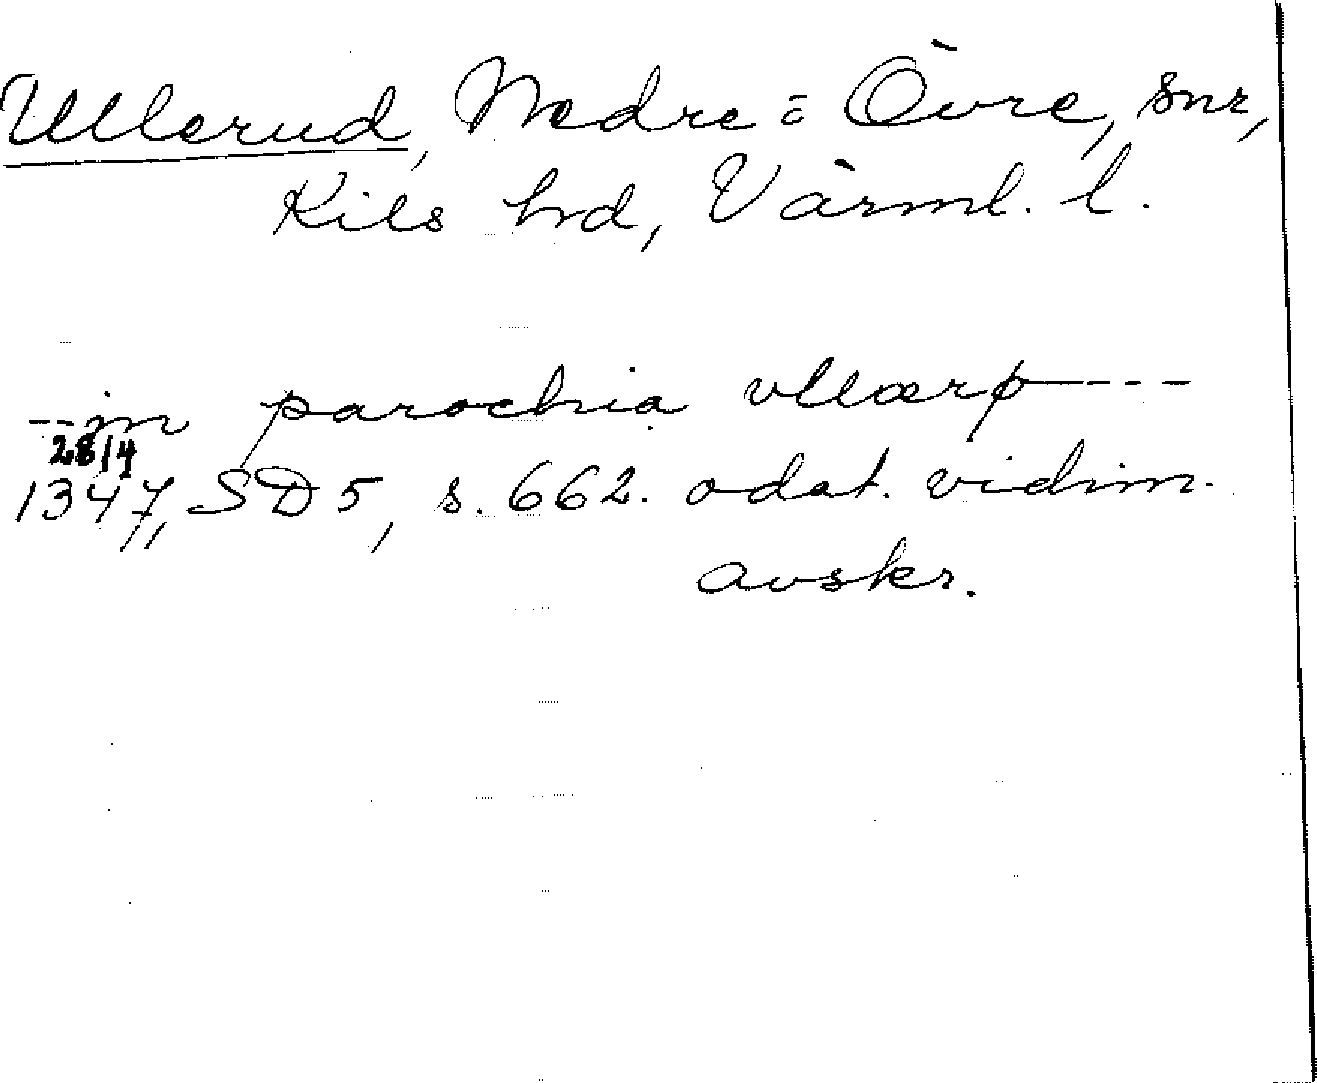 Ullerud, Nedre = Övre, snr,
Kils hd, Värml. l.
--in parochia vllærþ----
28/4
1347, SD 5, s. 662. odat. vidim.
avskr.